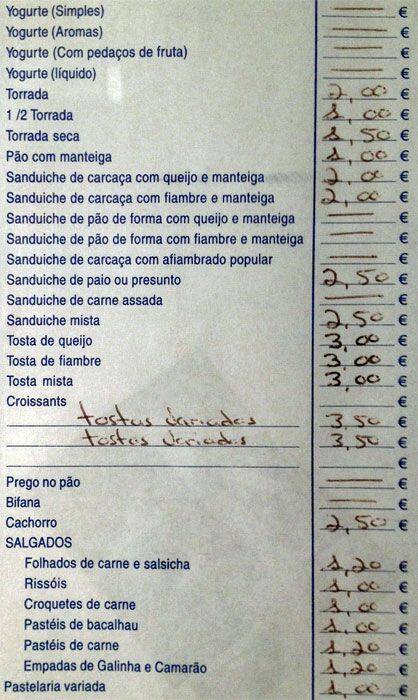 Yogurte (Simples) — €
Yogurte (Aromas) — €
Yogurte (Com pedaços de fruta) — €
Yogurte (líquido) — €
Torrada 2,00 €
1 /2 Torrada 1,00 €
Torrada seca 1,50 €
Pão com manteiga 1,00 €
Sanduiche de carcaça com queijo e manteiga 2,00 €
Sanduiche de carcaça com fiambre e manteiga 2,00 €
Sanduiche de pão de forma com queijo e manteiga — €
Sanduiche de pão de forma com fiambre e manteiga — €
Sanduiche de carcaça com afiambrado popular — €
Sanduiche de paio ou presunto 2,50 €
Sanduiche de carne assada — €
Sanduiche mista 2,50 €
Tosta de queijo 3,00 €
Tosta de fiambre 3,00 €
Tosta mista 3,00 €
Croissants €
tostas variadas 3,50 €
tostas variadas 3,50 €
€
Prego no pão — €
Bifana — €
Cachorro 2,50 €
SALGADOS
Folhados de carne e salsicha 1,20 €
Rissóis 1,00 €
Croquetes de carne 1,00 €
Pastéis de bacalhau 1,00 €
Pastéis de carne 1,20 €
Empadas de Galinha e Camarão 1,20 €
Pastelaria variada 1,00 €